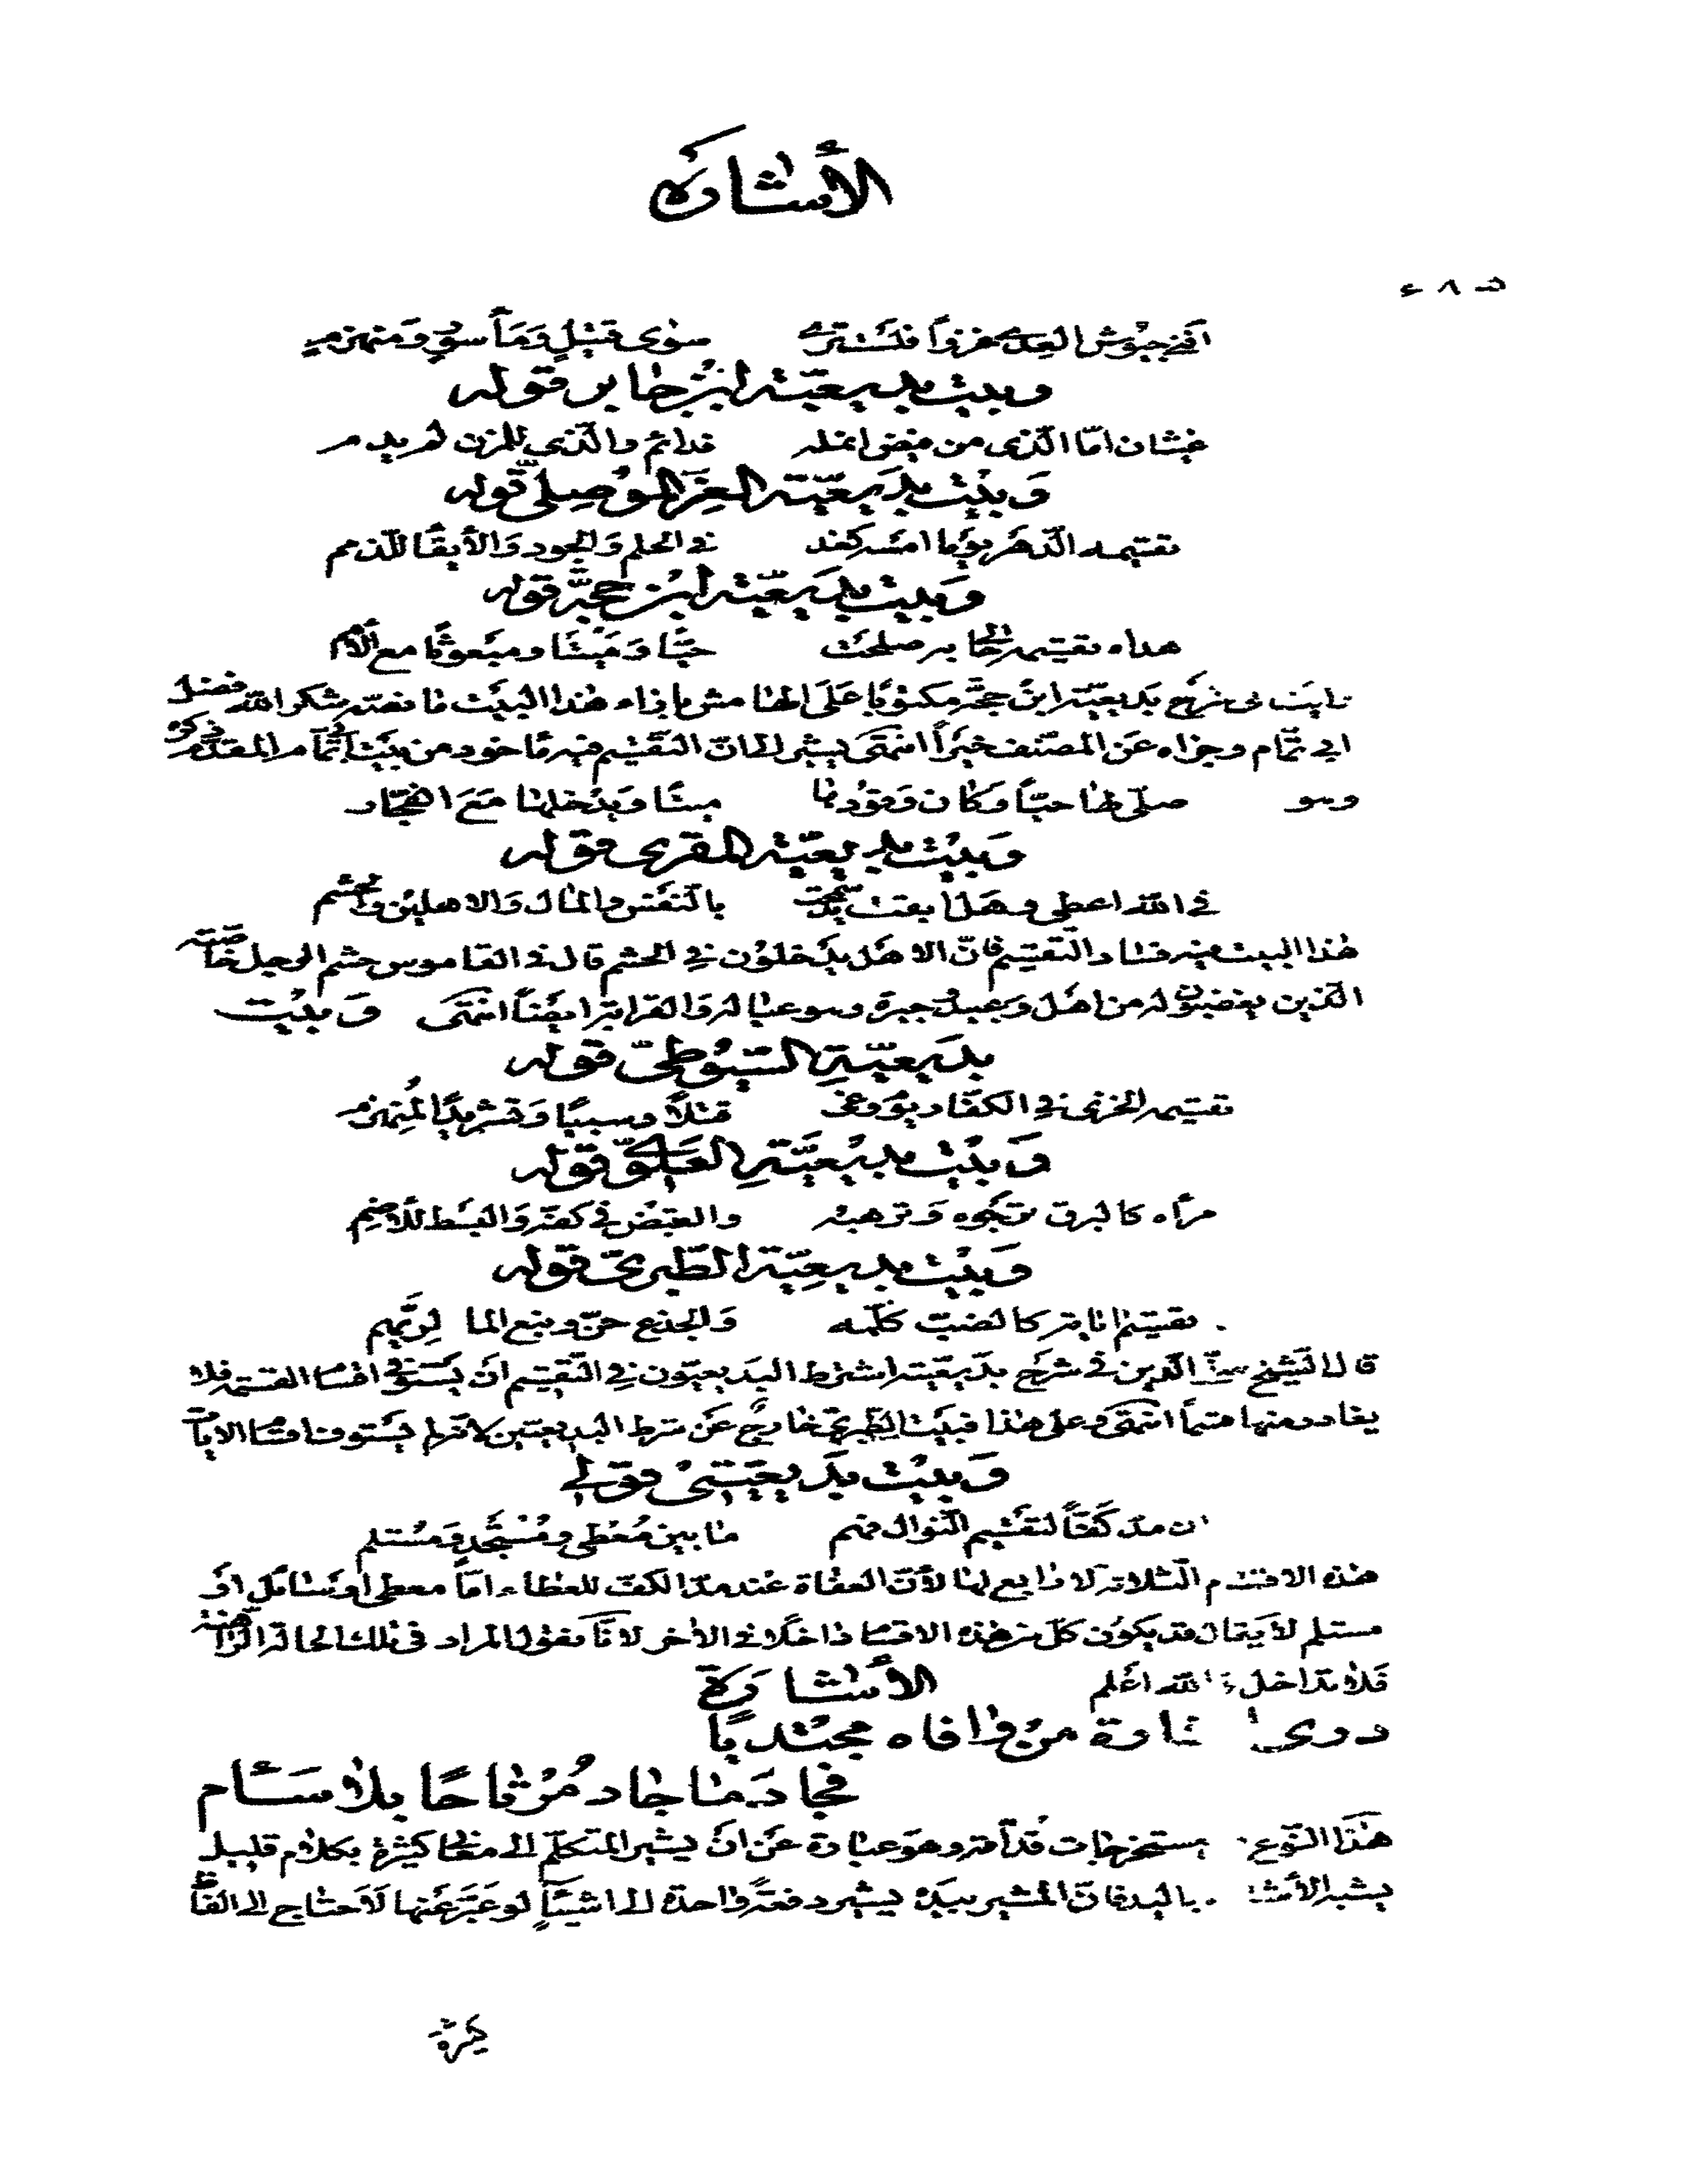 الأشارة
افنى جيوش العدى غزواً فلست ترى سوى قتيل ومأسور ومنهزم
وبيت بديعيته ابن جابر قوله
غيثان امّا الذى من فيض انمله فدائم والذى للمزن لم يدم
وبيت بديعيته العز الموصلى قوله
تقسيمه الدهر يومًا امسه كغد في الحلم والجود والأيفا للذمم
وبيت بديعيته ابن حجة قوله
هداه تقسيمه حالى به صلحت حيًّا وميتًا ومبعوثًا مع الأمم
رايت فى شرح بديعيته ابن حجة مكتوبًا على الهامش بإزاء هذا البيت ما نصّه شكر الله فضل
ابي تمّام وجزاه عن المصنف خيراً انتهى يشير الى انّ التقسيم فيه مأخوذ من بيت ابى تمام المقدّم ذكره
وهو صلّى لها حيّاً وكان وقودها ميتًا ويدخلها مع الفجّار
وبيت بديعيته المقرى قوله
في الله اعطى وهل ابقت يد سمحت بالنفس والمال والاهلين والحشم
هذا البيت فيه فساد التقسيم فانّ الاهل يدخلون في الحشم قال فى القاموس حشم الرجل خاصّته
الّذين يغضبون له من اهل وعبيد وجيرة وهو عياله والقرابة ايضاً انتهى وبيت
بديعية السيوطىّ قوله
تقسيمه الخزى في الكفّار يوم وغى قتلاً وسبيًا وتشريدًا لمنهزم
وبيت بديعيّة العلوىّ قوله
مرأه كالبرق ترجوه وترهبه والقبض في كفّه والبسط للأمم
وبيت بديعيّة الطّبرىّ قوله
تقسيم اياته كالضبّ كلّمه والجذع حنّ ونبع الما لريّهم
قال الشيخ صفىّ الدّين فى شرح بديعيّته اشترط البديعيون في التقسيم ان يستوفى اقسام القسمة فلا
يغادر منها قسماً انتهى وعلى هذا فبيت الطّبرىّ خارج عن شرط البديعيّين لانّه لم يستوف اقسام الايات
وبيت بديعيّتى قولي
ان مدّ كفّاً لتقسيم النّوال فهم ما بين مُعطى ومُستجدٍ ومُستلم
هذه الاقسام الثلاثة لا رابع لها لأنّ العفاة عند مدّ الكفّ للعطاء امّا معطى او سائل او
مستلم لا يقال قد يكون كلّ من هذه الاقسام داخلًا في الاخر لانّا نقول المراد فى تلك الحالة الرّاهنة
فلا تداخل والله اعلم الأشارة
وافاه مجتديًا
فجاد ما جاد مرتاحًا بلا سأم
هذا النّوع مستخرجات قدامه وهو عبارة عن ان يشير المتكلّم الى معانى كثيرة بكلام قليل
يشبه الأشارة باليد فانّ المشير بيده يشير دفعة واحدة الى اشياءٍ لو عبّر عنها لاحتاج الى الفاظ
كثيرة